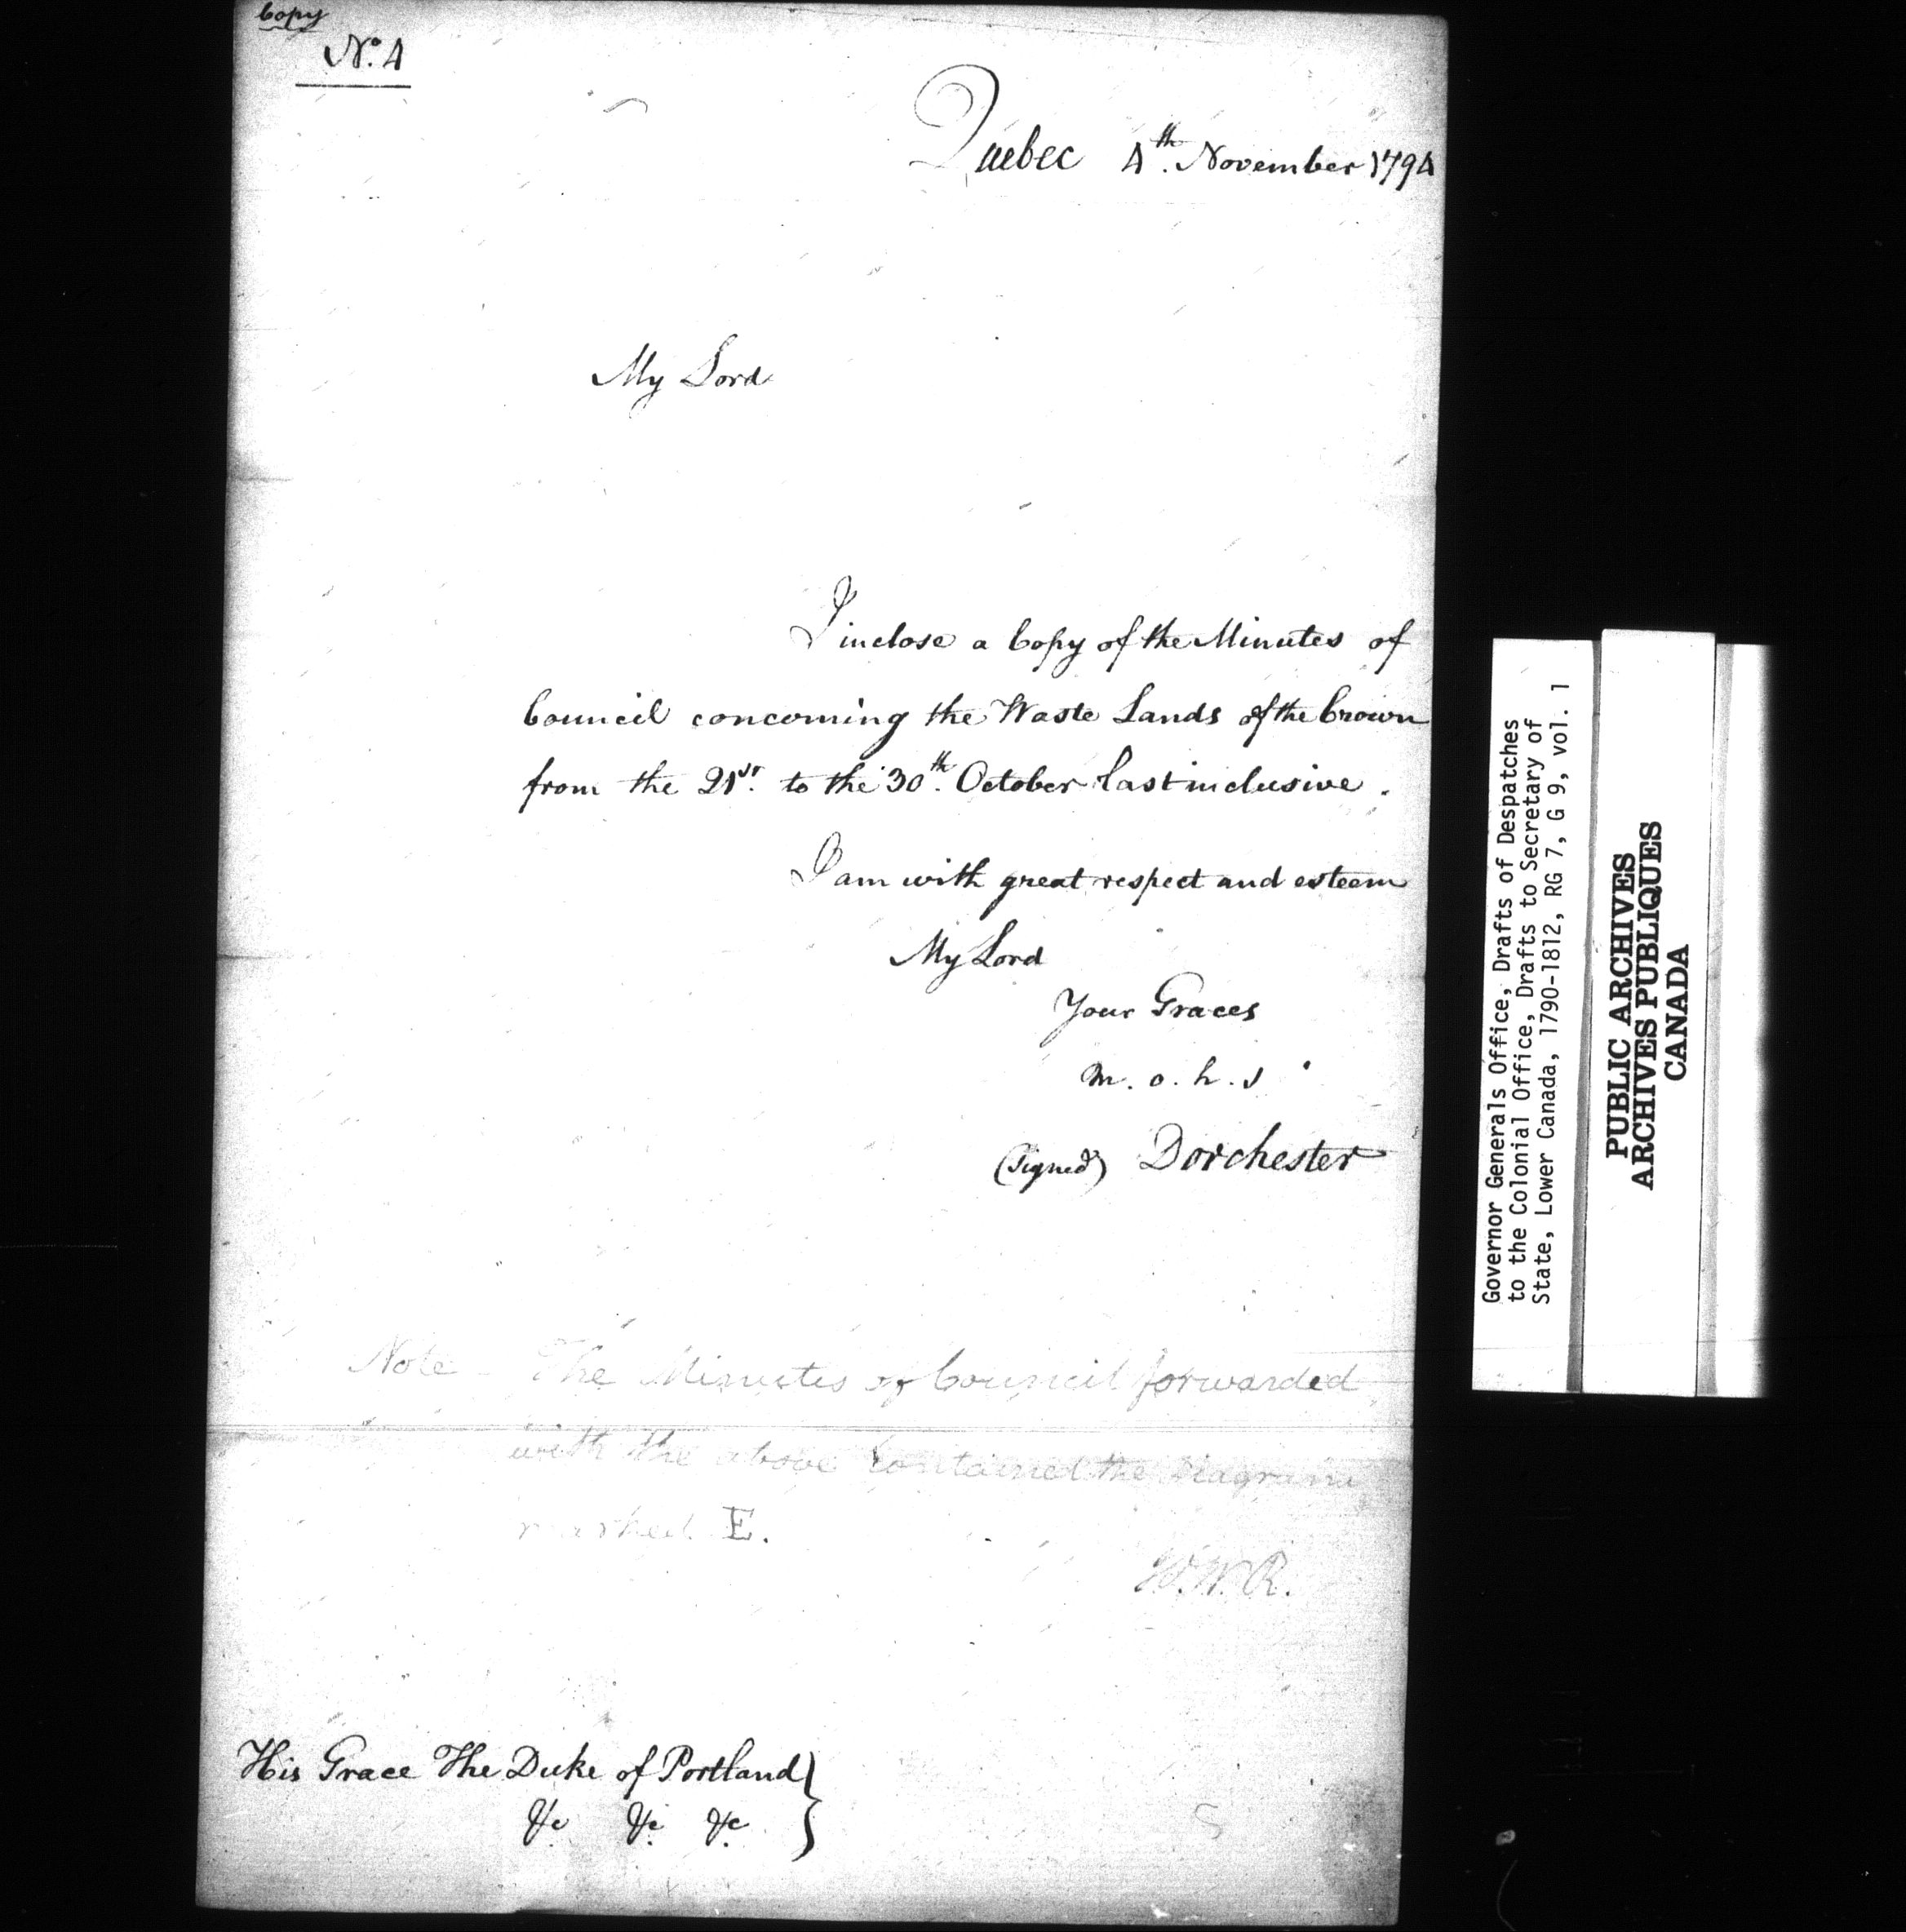 Copy
No. 4
Quebec 4th. November 1794
My Lord
I inclose a Copy of the Minutes of
Council concerning the Waste Lands of the Crown
from the 21st. to the 30th. October last inclusive.
I am with great respect and esteem
My Lord
Your Graces
m. o. h. s
(Signed) Dorchester
Note - The Minutes of Council forwarded
with the above contained the Diagram
marked E.
W.W.R.
His Grace The Duke of Portland }
&c &c &c
Governor Generals Office, Drafts of Despatches
to the Colonial Office, Drafts to Secretary of
State, Lower Canada, 1790-1812, RG 7, G 9, vol. 1
PUBLIC ARCHIVES
ARCHIVES PUBLIQUES
CANADA